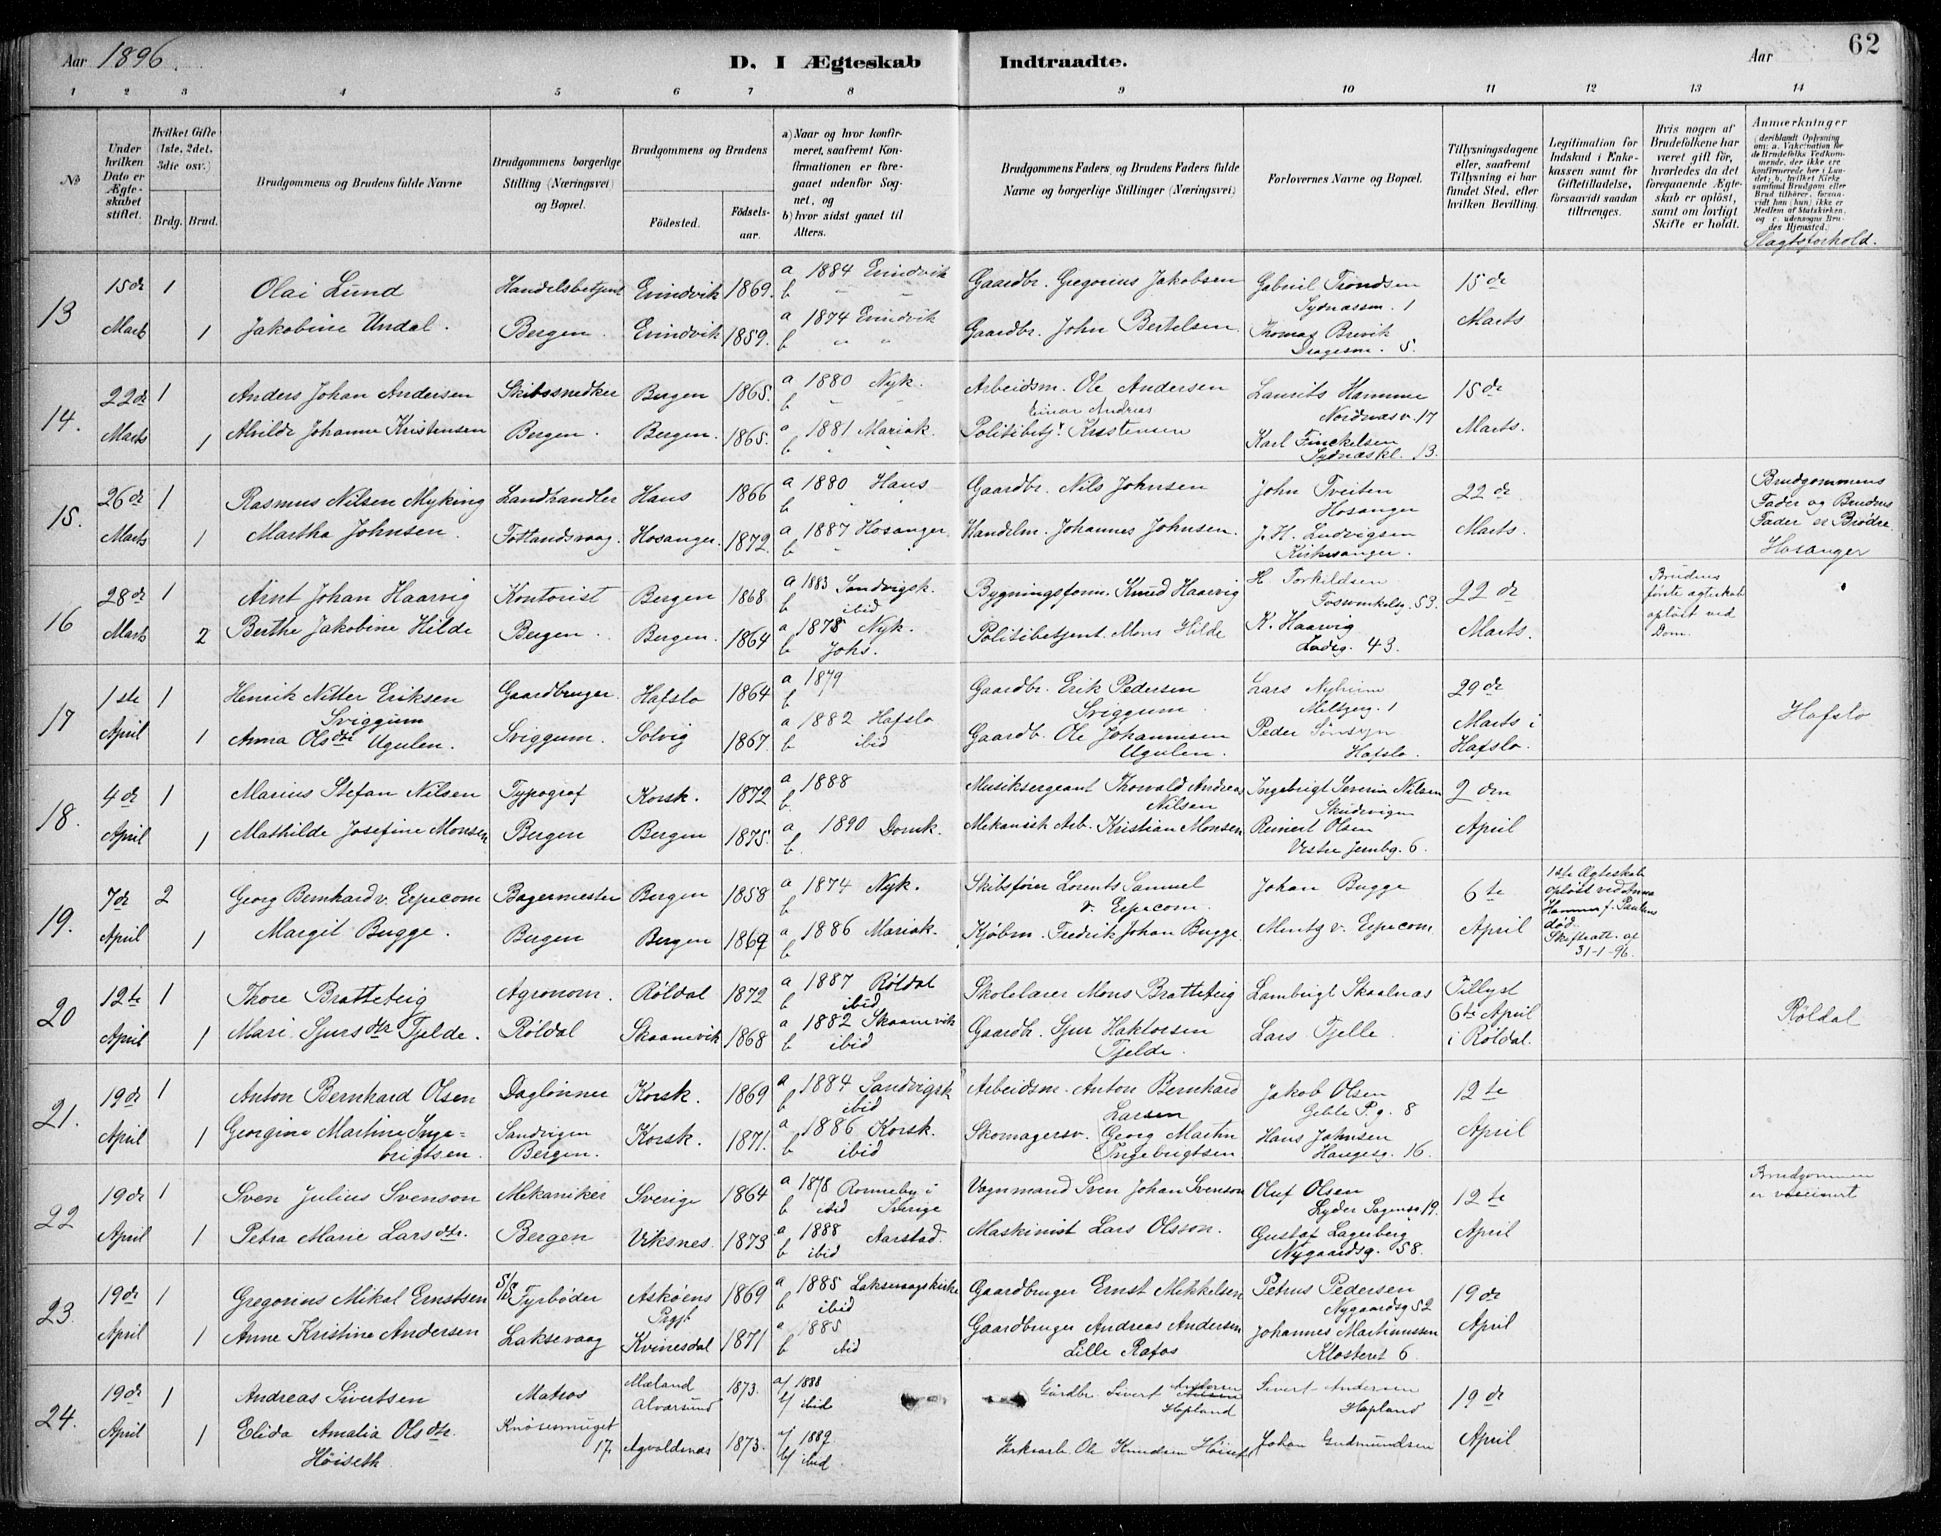 Aar 1896.
D. I Ægteskab Indtraadte.
Aar
62
1 2 3 4 5 6 7 8 9 10 11 12 13 14
No
Under hvilken Dato er Ægteskabet stiftet.
Hvilket Gifte (1ste, 2det, 3die osv.)
Brdg. Brud.
Brudgommens og Brudens fulde Navne
Brudgommens borgerlige Stilling (Næringsvei) og Bopæl.
Brudgommens og Brudens
Födested. Födsels-aar.
a) Naar og hvor konfirmeret, saafremt Konfirmationen er foregaaet udenfor Sognet, og
b) hvor sidst gaaet til Alters.
Brudgommens Faders og Brudens Faders fulde Navne og borgerlige Stillinger (Næringsvei)
Forlovernes Navne og Bopæl.
Tillysningsdagene eller, saafremt Tillysning ei har fundet Sted, efter hvilken Bevilling.
Legitimation for Indskud i Enkekassen samt for Giftetilladelse, forsaavidt saadan tiltrænges.
Hvis nogen af Brudefolkene har været gift för, hvorledes da det foregaaende Ægteskab er oplöst, samt om lovligt Skifte er holdt.
Anmærkninger
(deriblandt Oplysning om: a. Vakcination for de Brudefolks Vedkommende, der ikke ere konfirmerede her i Landet; b. hvilket Kirkesamfund Brudgom eller Brud tilhörer, forsaavidt han (hun) ikke er Medlem af Statskirken, og c. udensogns Brudes Hjemsted.)
Slagtsforhold.
13 15de 1 Olai Lund Handelsbetjent Evindvik 1869. a 1884 Evindvik b " " Gaardbr. Gregorius Jakobsen Gabriel Trondsen Sydnæssm. 1 15de
Marts 1 Jakobine Undal. Bergen. Evindvik 1859. a 1874 Evindvik b " " Gaardbr. John Bertelsen. Thomas Brevik Dragesm. 5. Marts
14. 22de 1 Anders Johan Andersen Skibssnedker Bergen 1865. a 1880 Nyk. b " " Arbeidsm. Ole Andersen Laurits Hamme Nordnæsv. 17 15de
Marts. 1 Alvilde Johanne Kristensen Bergen. Bergen. 1865. a 1881 Mariak. b " " Einar Andreas Politibetj. Kristensen Karl Finckelsen Sydnæskl. 13. Marts.
15. 26de 1 Rasmus Nilsen Myking Landhandler Haus 1866 a 1880 Haus b " Gaardbr. Nils Johnsen John Tveiten Hosanger 22de Brudgommens Fader og Brudens Fader er Brødre
Marts. 1 Martha Johnsen. Fotlandsvaag. Hosanger. 1872. a 1887 Hosanger. b " " Handelm. Johannes Johnsen. J. H. Ludvigsen Kirkesanger. Marts. Hosanger
16 28de 1 Arnt Johan Haarvig Kontorist Bergen 1868. a 1883 Sandvigsk. b ibid Bygningsform. Knud Haarvig H Torkildsen 53. 22de Brudens første ægteskab opløst ved Dom.
Marts 2 Berthe Jakobine Hilde Bergen. Bergen. 1864 a 1878 Nyk. b Johs. Politibetjent. Mons Hilde K. Haarvig Ladeg. 43 Marts.
17 1ste 1 Henrik Nitter Eriksen Sviggum Gaardbruger. Hafslo 1864 a 1879 b Gaardbr. Erik Pedersen Sviggum. Lars Nyheim 1 29de Hafslo
April 1 Anna Olsdtr Ugulen. Sviggum. Solvig 1867. a 1882 Hafslo b ibid Gaardb. Ole Johannesen Ugulen. Peder Hafslo. Marts i Hafslo.
18. 4de 1 Marius Stefan Nilsen Typograf Korsk. 1872 a 1888 b Musiksergeant Thorvald Andreas Nilsen Ingebrigt Severin Nilsen Skudevigen 2den
April 1 Mathilde Josefine Monsen Bergen Bergen 1875. a 1890 Domk. b. Mekanisk Arb. Kristian Monsen Reinert Olsen Vestre Jernbg. 6. April
19. 7de 2 Georg Bernhard v. Erpecom Bagermester Bergen 1858 a 1874 Nyk. b Skibsfører Lorents Samuel v. Erpecom. Johan Bugge 6te 1ste Ægteskab opløst ved Anna Hanna f. Paulsens død. Skifteatt. af 31-1-96.
April 1 Margit Bugge. Bergen Bergen 1869 a 1886 Mariak. b Kjøbm. Fredrik Johan Bugge. Mentz v. Erpecom. April
20 12te 1 Thore Bratteteig Agronom. Røldal 1872 a 1887 Røldal b ibid Skolelærer Mons Bratteteig Lambrigt Skaalnæs Tillyst Røldal
April 1 Mari Sjursdtr Tjelde. Røldal Skaanevik 1868 a 1882 Skaanevik b ibid Gaardb. Sjur Haktorsen Tjelde. Lars Tjelle. 6te April i Røldal.
21. 19de 1 Anton Bernhard Olsen Daglønner Korsk. 1869 a 1884 Sandvigsk b ibid Arbeidsm. Anton Bernhard Larsen Jakob Olsen Geble P. g. 8 12te
April 1 Georgine Martine Ingebrigtsen. Sandvigen Bergen. Korsk. 1871. a 1886 Korsk. b ibid Skomagersv. Georg Martin Ingebrigtsen Hans Johnsen Haugesg. 16. April
22 19de 1 Sven Julius Svenson Mekaniker Sverige 1864 a 1878 Ronneby i b ibid Sverige Vognmand Sven Johan Svenson Oluf Olsen Lyder Sagensg. 19. 12te Brudgommen er vaccinert
April 1 Petra Marie Larsdtr. Bergen Viksnes. 1873 a 1888 Aarstad. b ibid Maskinist Lars Olsson. Gustaf Lagerberg Nygaardsg. 58. April
23. 19de 1 Gregorius Mikal Ernstsen Fyrbøder Askøens Prgj. 1869 a 1885 Laksevaagskirke b ibid Gaardbruger Ernst Mikkelsen Petrus Pedersen Nygaardsg 52 19de
April 1 Anne Kristine Andersen Laksevaag Kvinesdal 1871 a 1885 b ibid Gaardbruger Andreas Andersen Lille Rafos Johannes Martinussen Klosteret 6 April
24. 19de 1 Andreas Sivertsen Matros Mæland Alværsund 1873. a/ 1888 b/ ibid Gårdbr Sivert Andersen Hopland Sivert Andersen Hopland 19de
April 1 Elida Amalia Olsdtr. Høiseth Knøsesmuget 17. Agvaldsnæs 1873. a/ 1889 b/ ibid Ole Knudsen Høiseth Johan Gudmundsen April